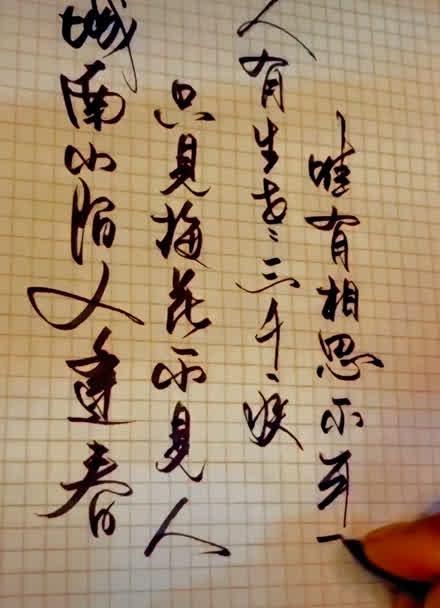 城南小陌又逢春
只見梅花不見人
人有生老三千疾
唯有相思不可